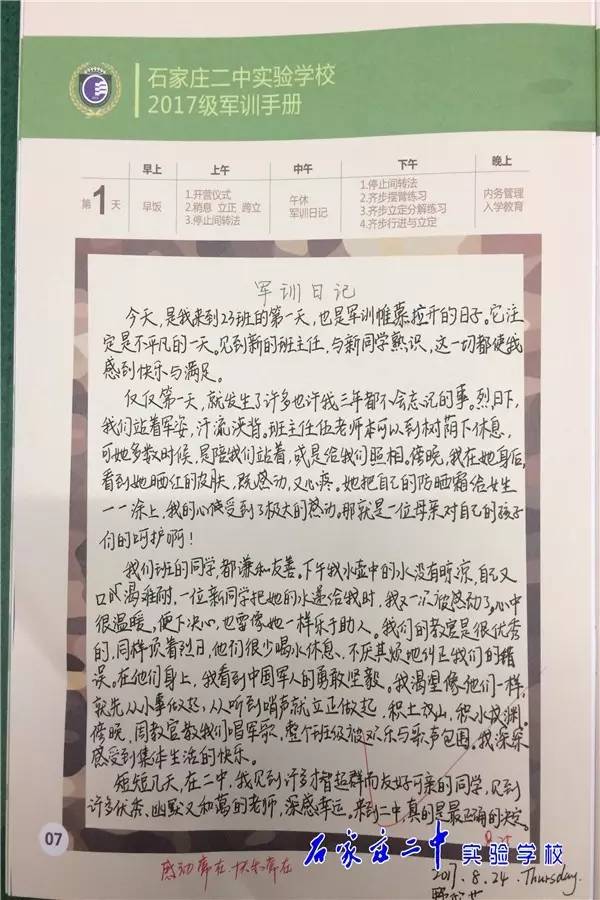 石家庄二中实验学校
2017级军训手册
早上 上午 中午 下午 晚上
第1天
早饭
1.开营仪式
2.稍息 立正 跨立
3.停止间转法
午休
军训日记
1.停止间转法
2.齐步摆臂练习
3.齐步立定分解练习
4.齐步行进与立定
内务管理
入学教育
军训日记
今天,是我来到23班的第一天,也是军训帷幕拉开的日子。它注
定是不平凡的一天。见到新的班主任,与新同学熟识,这一切都使我
感到快乐与满足。
仅仅第一天,就发生了许多也许我三年都不会忘记的事。烈日下,
我们站着军姿,汗流浃背。班主任伍老师本可以到树荫下休息,
可她多数时候,是陪我们站着,或是给我们照相。傍晚,我在她身后,
看到她晒红的皮肤,既感动,又心疼。她把自己的防晒霜给女生
一一涂上,我的心灵受到了极大的感动,那就是一位母亲对自己的孩子
们的呵护啊!
我们班的同学,都谦和友善。下午我水壶中的水没有晾凉,自己又
口渴难耐,一位新同学把她的水递给我时,我又一次被感动了,心中
很温暖,便下决心,也要像她一样乐于助人。我们的教官是很优秀
的,同样顶着烈日,他们很少喝水休息,不厌其烦地纠正我们的错
误。在他们身上,我看到中国军人的勇敢坚毅。我渴望像他们一样,
就先从小事做起,从听到哨声就立正做起,积土成山,积水成渊。
傍晚,周教官教我们唱军歌,整个班级被欢乐与歌声包围。我深深
感受到集体生活的快乐。
短短几天,在二中,我见到许多才智超群而友好可亲的同学,见到
许多优秀、幽默又和蔼的老师,深感幸运。来到二中,真的是最正确的决定。
07
感动常在,快乐常在
石家庄二中实验学校
2017.8.24.Thursday